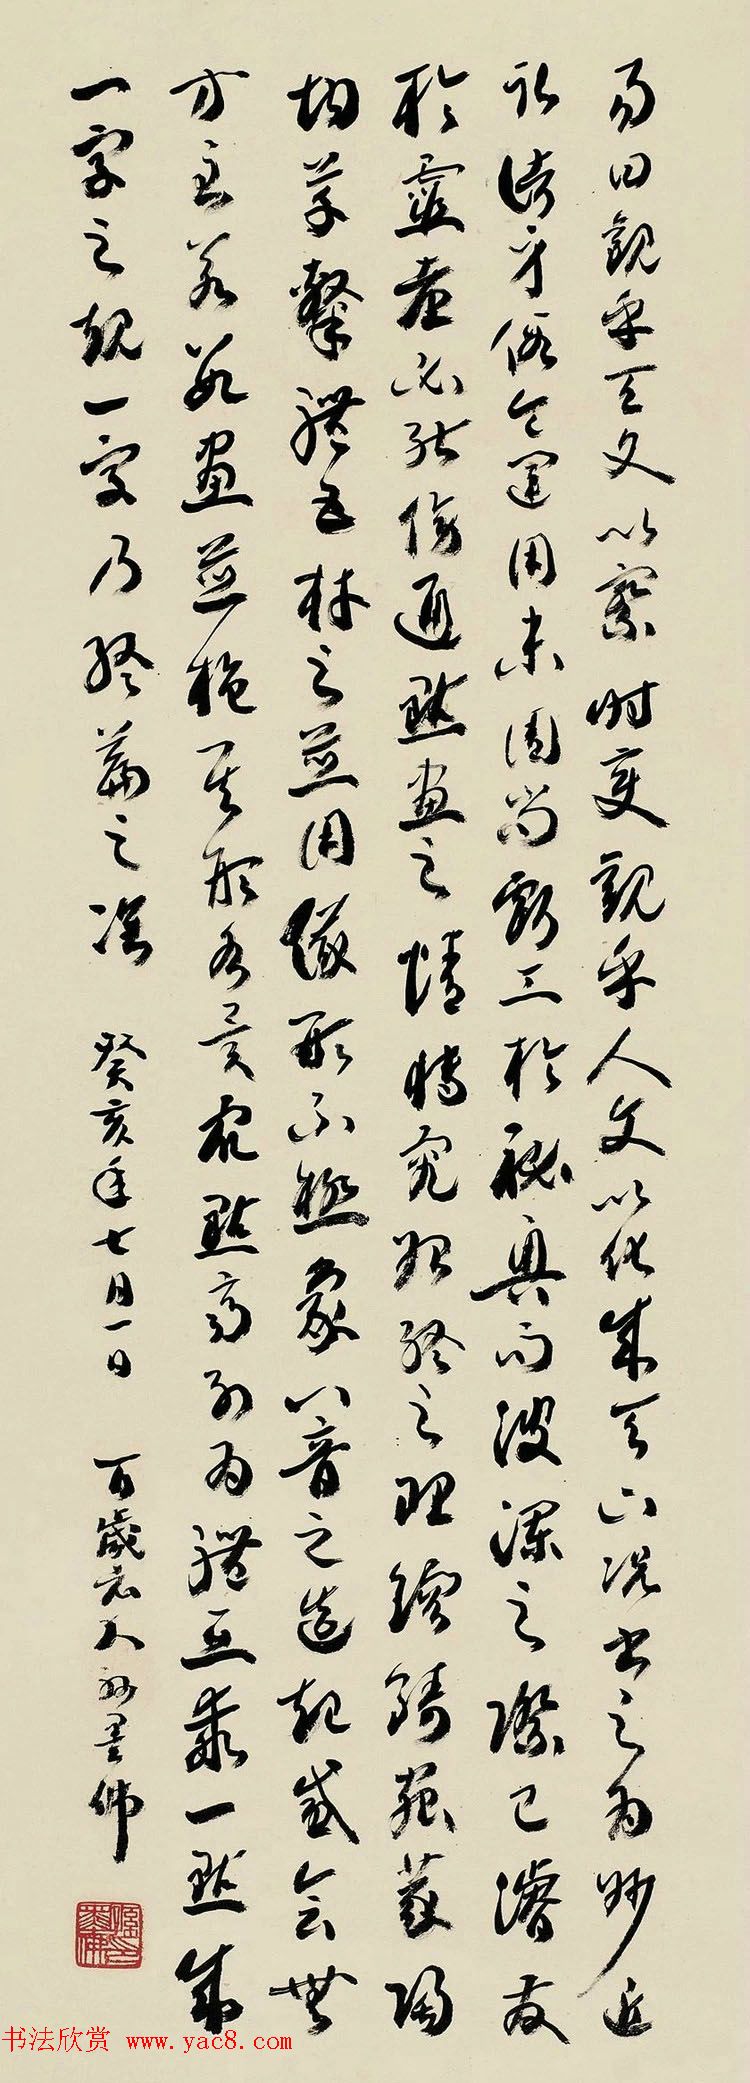 易曰觀乎天文以察時變觀乎人文以化成天下況書之為妙近
取諸身假令運用未周尚虧工於秘奧而波瀾之際已濬發
於靈臺必能傍通點畫之情博究始終之理鎔鑄蟲篆陶
均草隸體五材之並用儀形不極象八音之迭起感會無
方至若數畫並施其形各異眾點齊列為體互乖一點成
一字之規一字乃終篇之準 癸亥年七月一日 百歲老人孫墨佛
书法欣赏 www.yac8.com